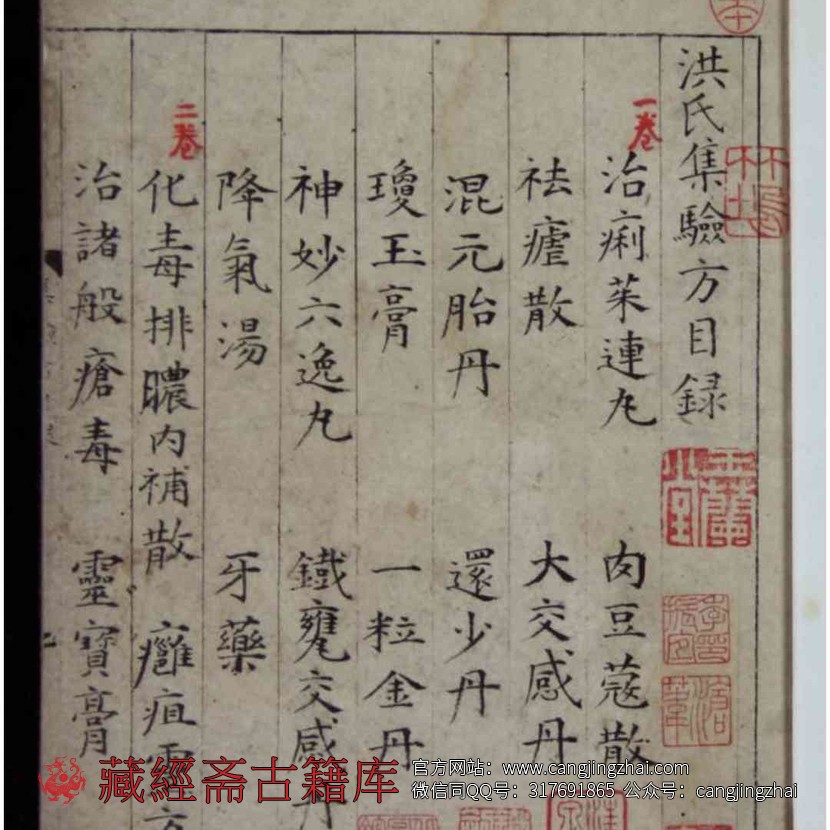 洪氏集驗方目録
一卷
治痢茱連丸 肉豆蔻散
祛瘧散 大交感丹
混元胎丹 還少丹
瓊玉膏 一粒金丹
神妙六逸丸 鐵甕交感丹
降氣湯 牙藥
二卷
化毒排膿内補散 癰疽
治諸般瘡毒 靈寶膏
藏經斋古籍库
官方网站：www.cangjingzhai.com
微信同QQ号：317691865 公众号：cangjingzhai